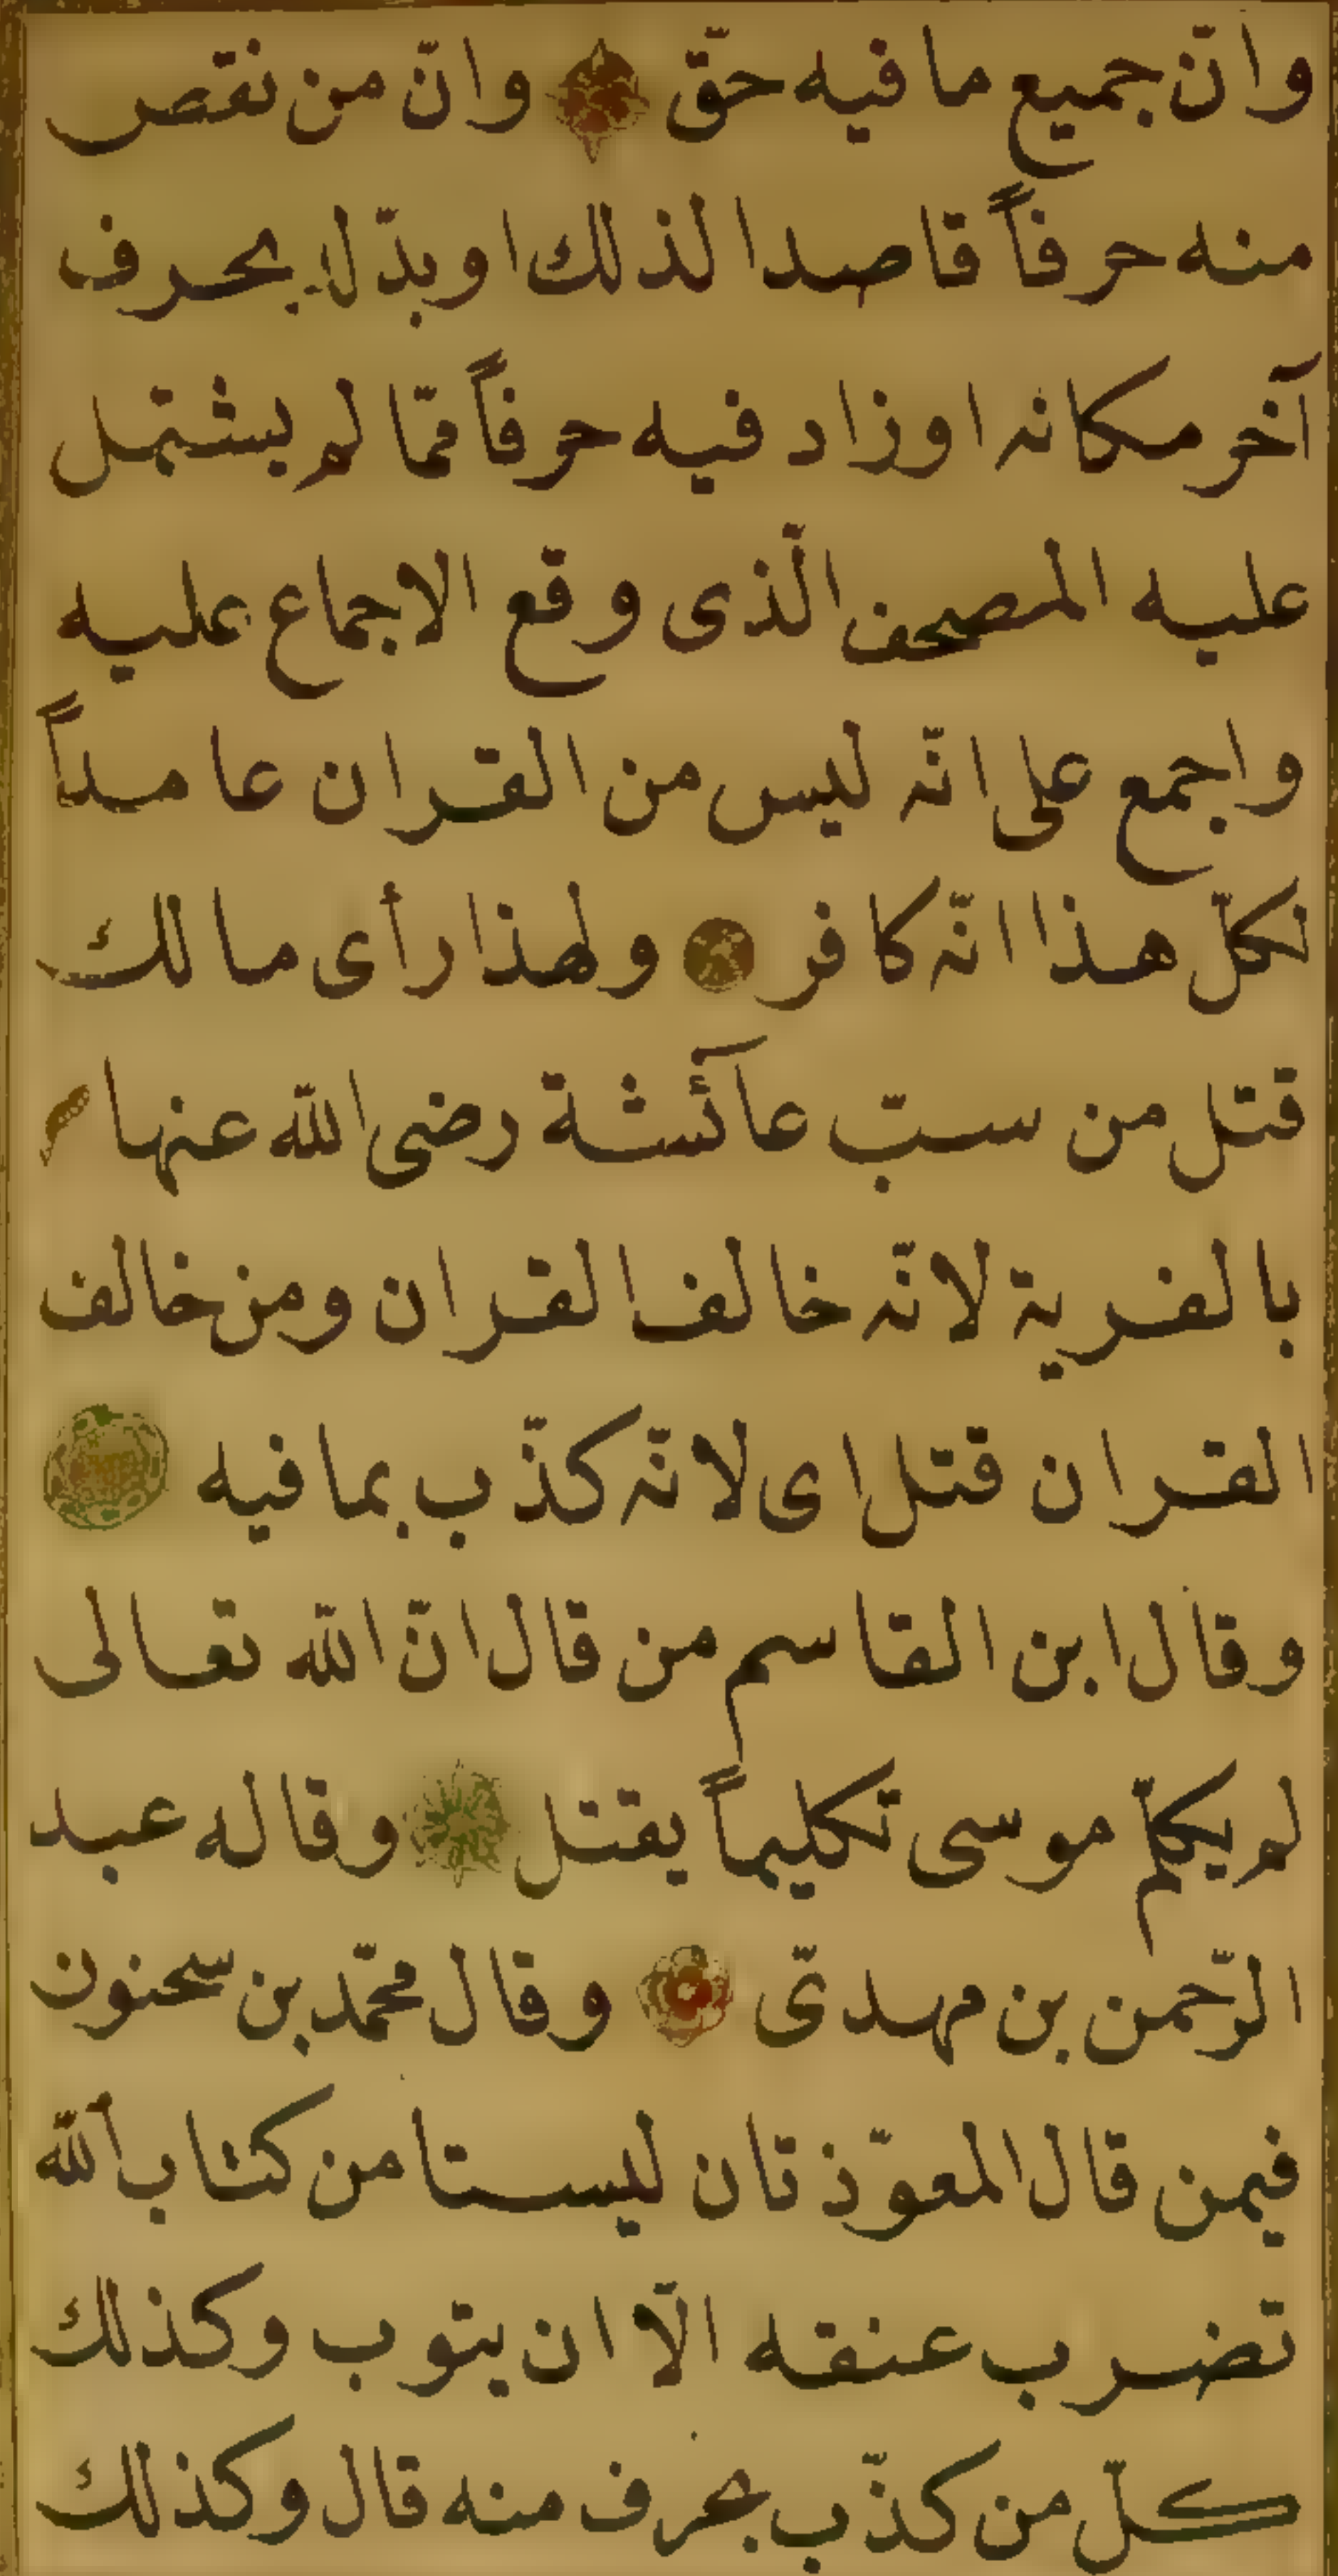 وانّ جميع ما فيه حقّ وانّ من نقص
منه حرفاً قاصدا لذلك او بدّله بحرف
آخر مكانه او زاد فيه حرفاً ممّا لم يشتمل
عليه المصحف الّذى وقع الاجماع عليه
واجمع على انّه ليس من القران عامداً
لكلّ هذا انّه كافر ولهذا رأى مالك
قتل من سبّ عآئشة رضى الله عنها
بالفرية لانّه خالف القران ومن خالف
القران قتل اى لانّه كذّب بما فيه
وقال ابن القاسم من قال انّ الله تعالى
لم يكلّم موسى تكليماً يقتل وقاله عبد
الرّحمن بن مهدىّ وقال محمّد بن سحنون
فيمن قال المعوّذتان ليستا من كتاب الله
تضرب عنقه الّا ان يتوب وكذلك
كلّ من كذّب بحرف منه قال وكذلك